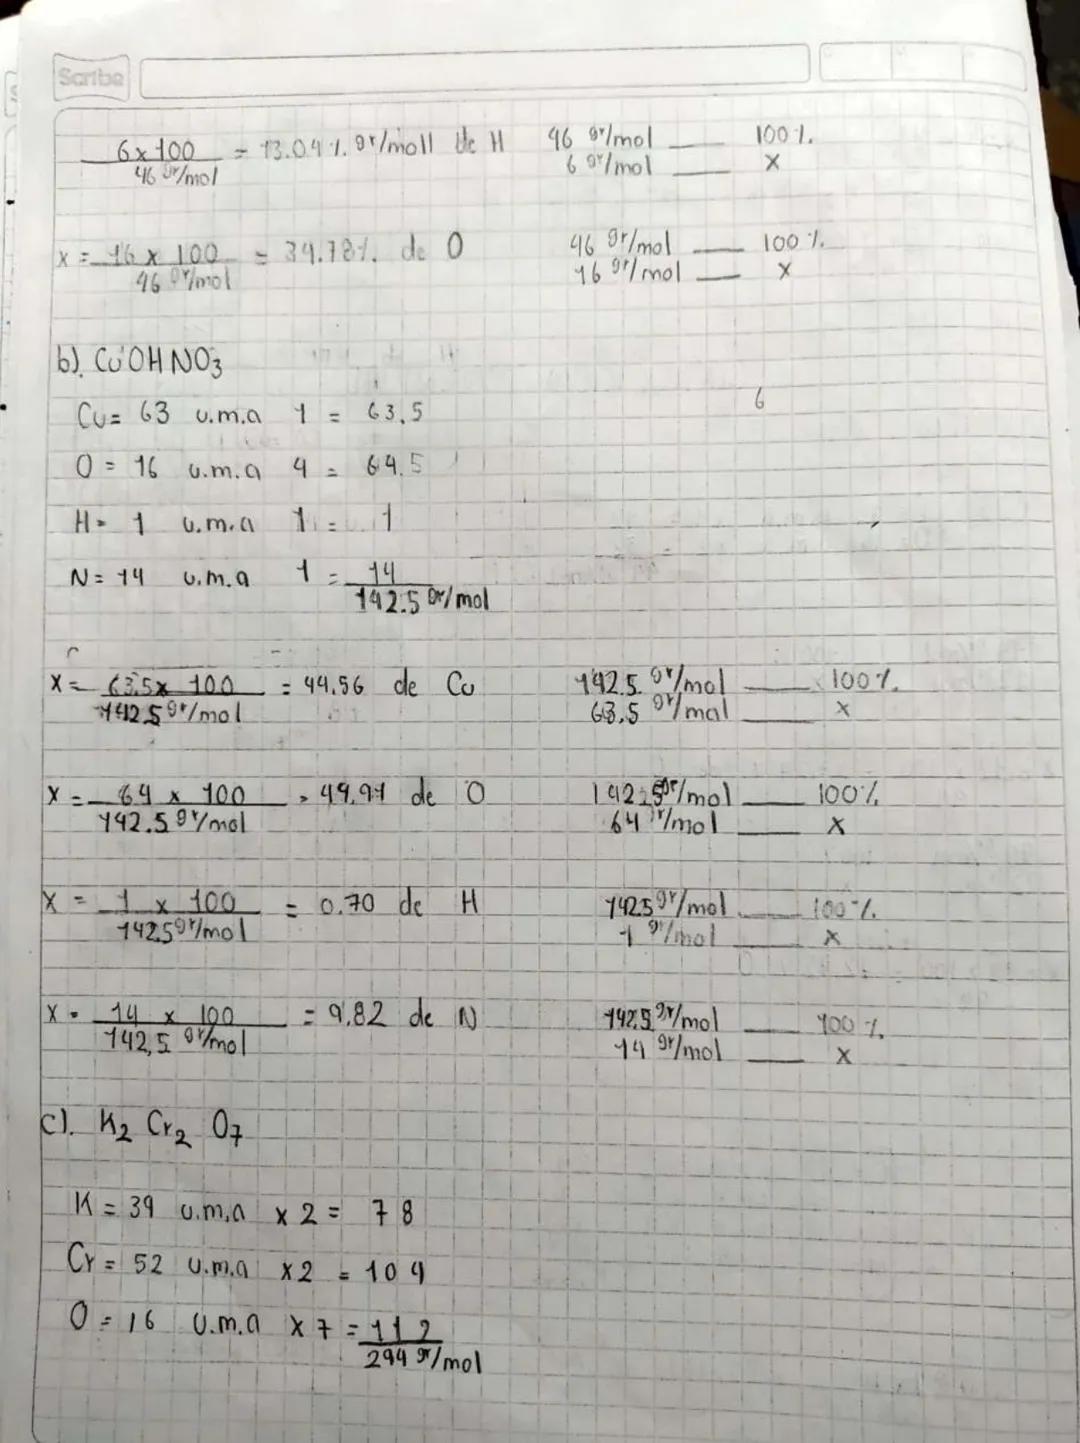 Scribe
6 x 100 / 46 gr/mol = 13.04 %. gr/moll de H 46 gr/mol ___ 100 %.
6 gr/mol ___ X
X = 16 x 100 / 46 gr/mol = 34.78 %. de O 46 gr/mol ___ 100 %.
16 gr/mol ___ X
b). CuOHNO3
6
Cu = 63 u.m.a 1 = 63.5
O = 16 u.m.a 4 = 64.5
H = 1 u.m.a 1 = 1
N = 14 u.m.a 1 = 14
142.5 gr/mol
X = 63.5 x 100 / 142.5 gr/mol = 44.56 de Cu 142.5 gr/mol ___ 100 %.
63.5 gr/mol ___ X
X = 64 x 100 / 142.5 gr/mol = 44.91 de O 142.5 gr/mol ___ 100 %.
64 gr/mol ___ X
X = 1 x 100 / 142.5 gr/mol = 0.70 de H 142.5 gr/mol ___ 100 %.
1 gr/mol ___ X
X = 14 x 100 / 142,5 gr/mol = 9.82 de N 142.5 gr/mol ___ 100 %.
14 gr/mol ___ X
c). K2 Cr2 O7
K = 39 u.m.a x 2 = 78
Cr = 52 u.m.a x 2 = 104
O = 16 u.m.a x 7 = 112
294 gr/mol